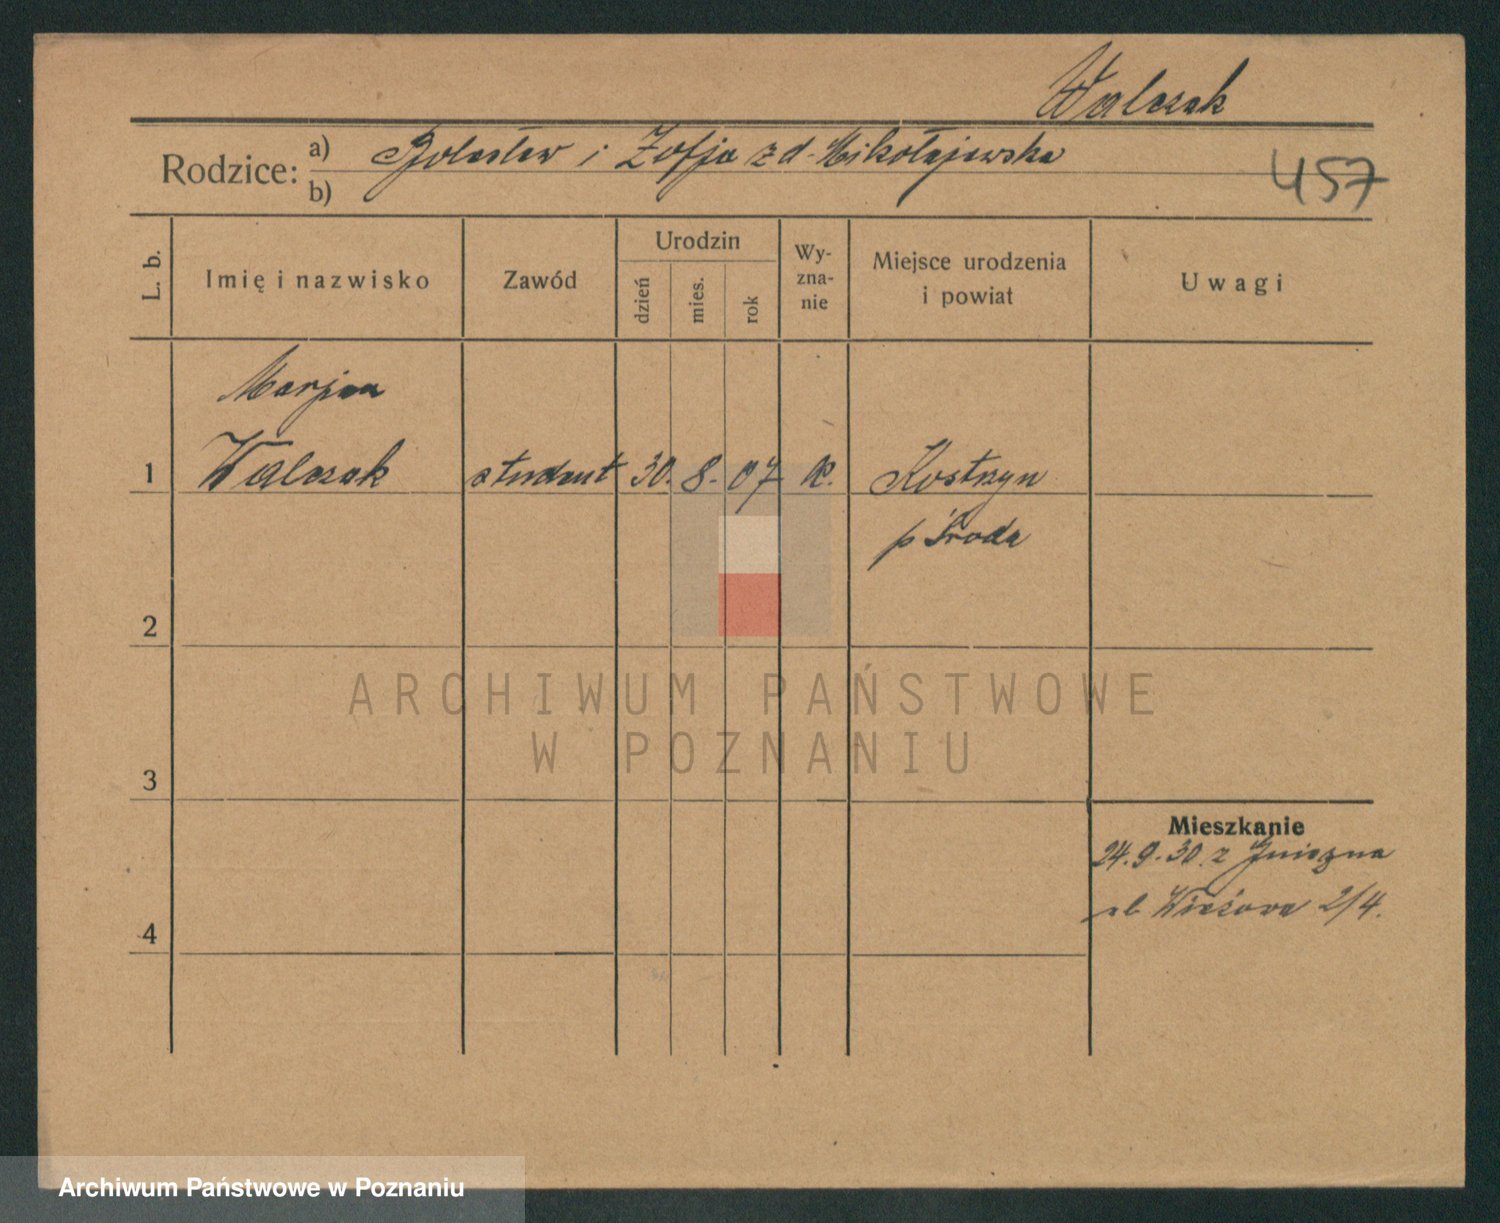 Walczak
Rodzice: a) Bolesław i Zofja z d. Mikołajewska
b)
457
L. b.
Imię i nazwisko
Zawód
Urodzin
dzień
mies.
rok
Wy-
zna-
nie
Miejsce urodzenia
i powiat
Uwagi
Marjan
1 Walczak student 30. 8. 07 k. Kostrzyn
p Środa
2
ARCHIWUM PAŃSTWOWE
W POZNANIU
3
Mieszkanie
24.9.30 z Gniezna
ul. 2/4.
4
Archiwum Państwowe w Poznaniu